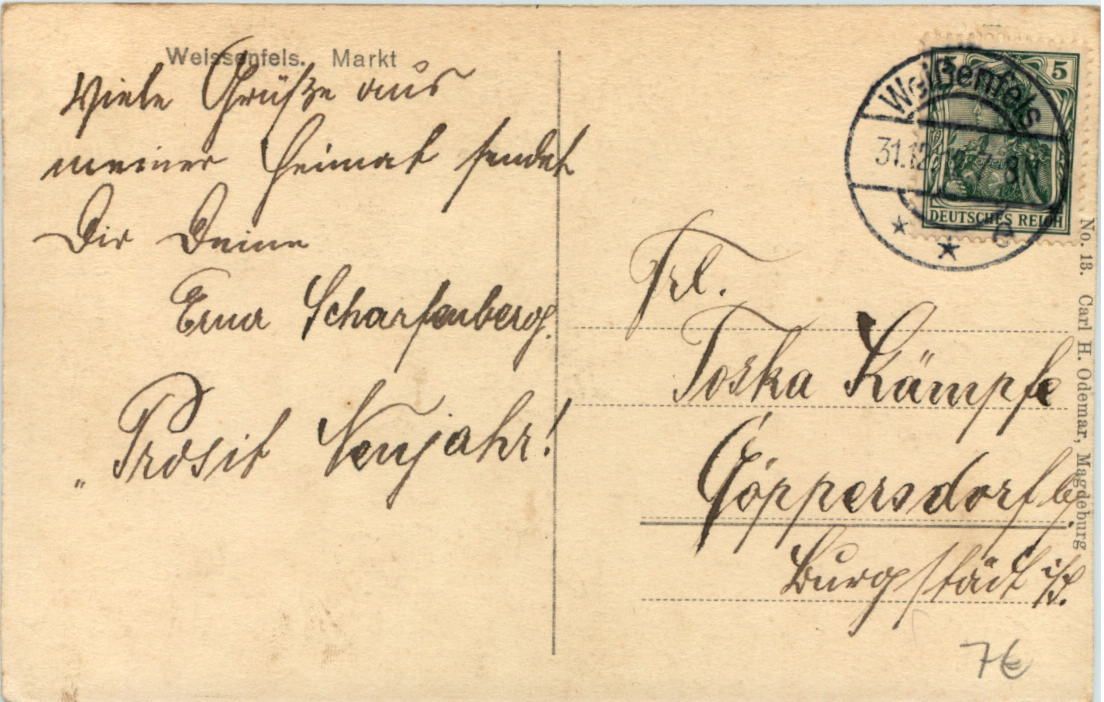 Weissenfels. Markt
Viele Grüße aus
meiner Heimat sendet
Dir Deine
Erna Scharfenberg.
„Prosit Neujahr!
Weißenfels
31.12. 7-8N
* * c *
5
DEUTSCHES REICH
Frl.
Toska Kämpfe
Göppersdorf b/
Burgstädt i/S.
No. 13. Carl H. Odemar, Magdeburg
7€